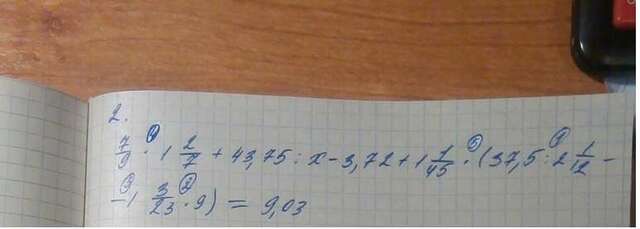 2.
7/9 · 1 2/7 + 43,75 : x - 3,72 + 1 1/45 · (37,5 : 2 1/12 -
- 1 3/23 · 9) = 9,03